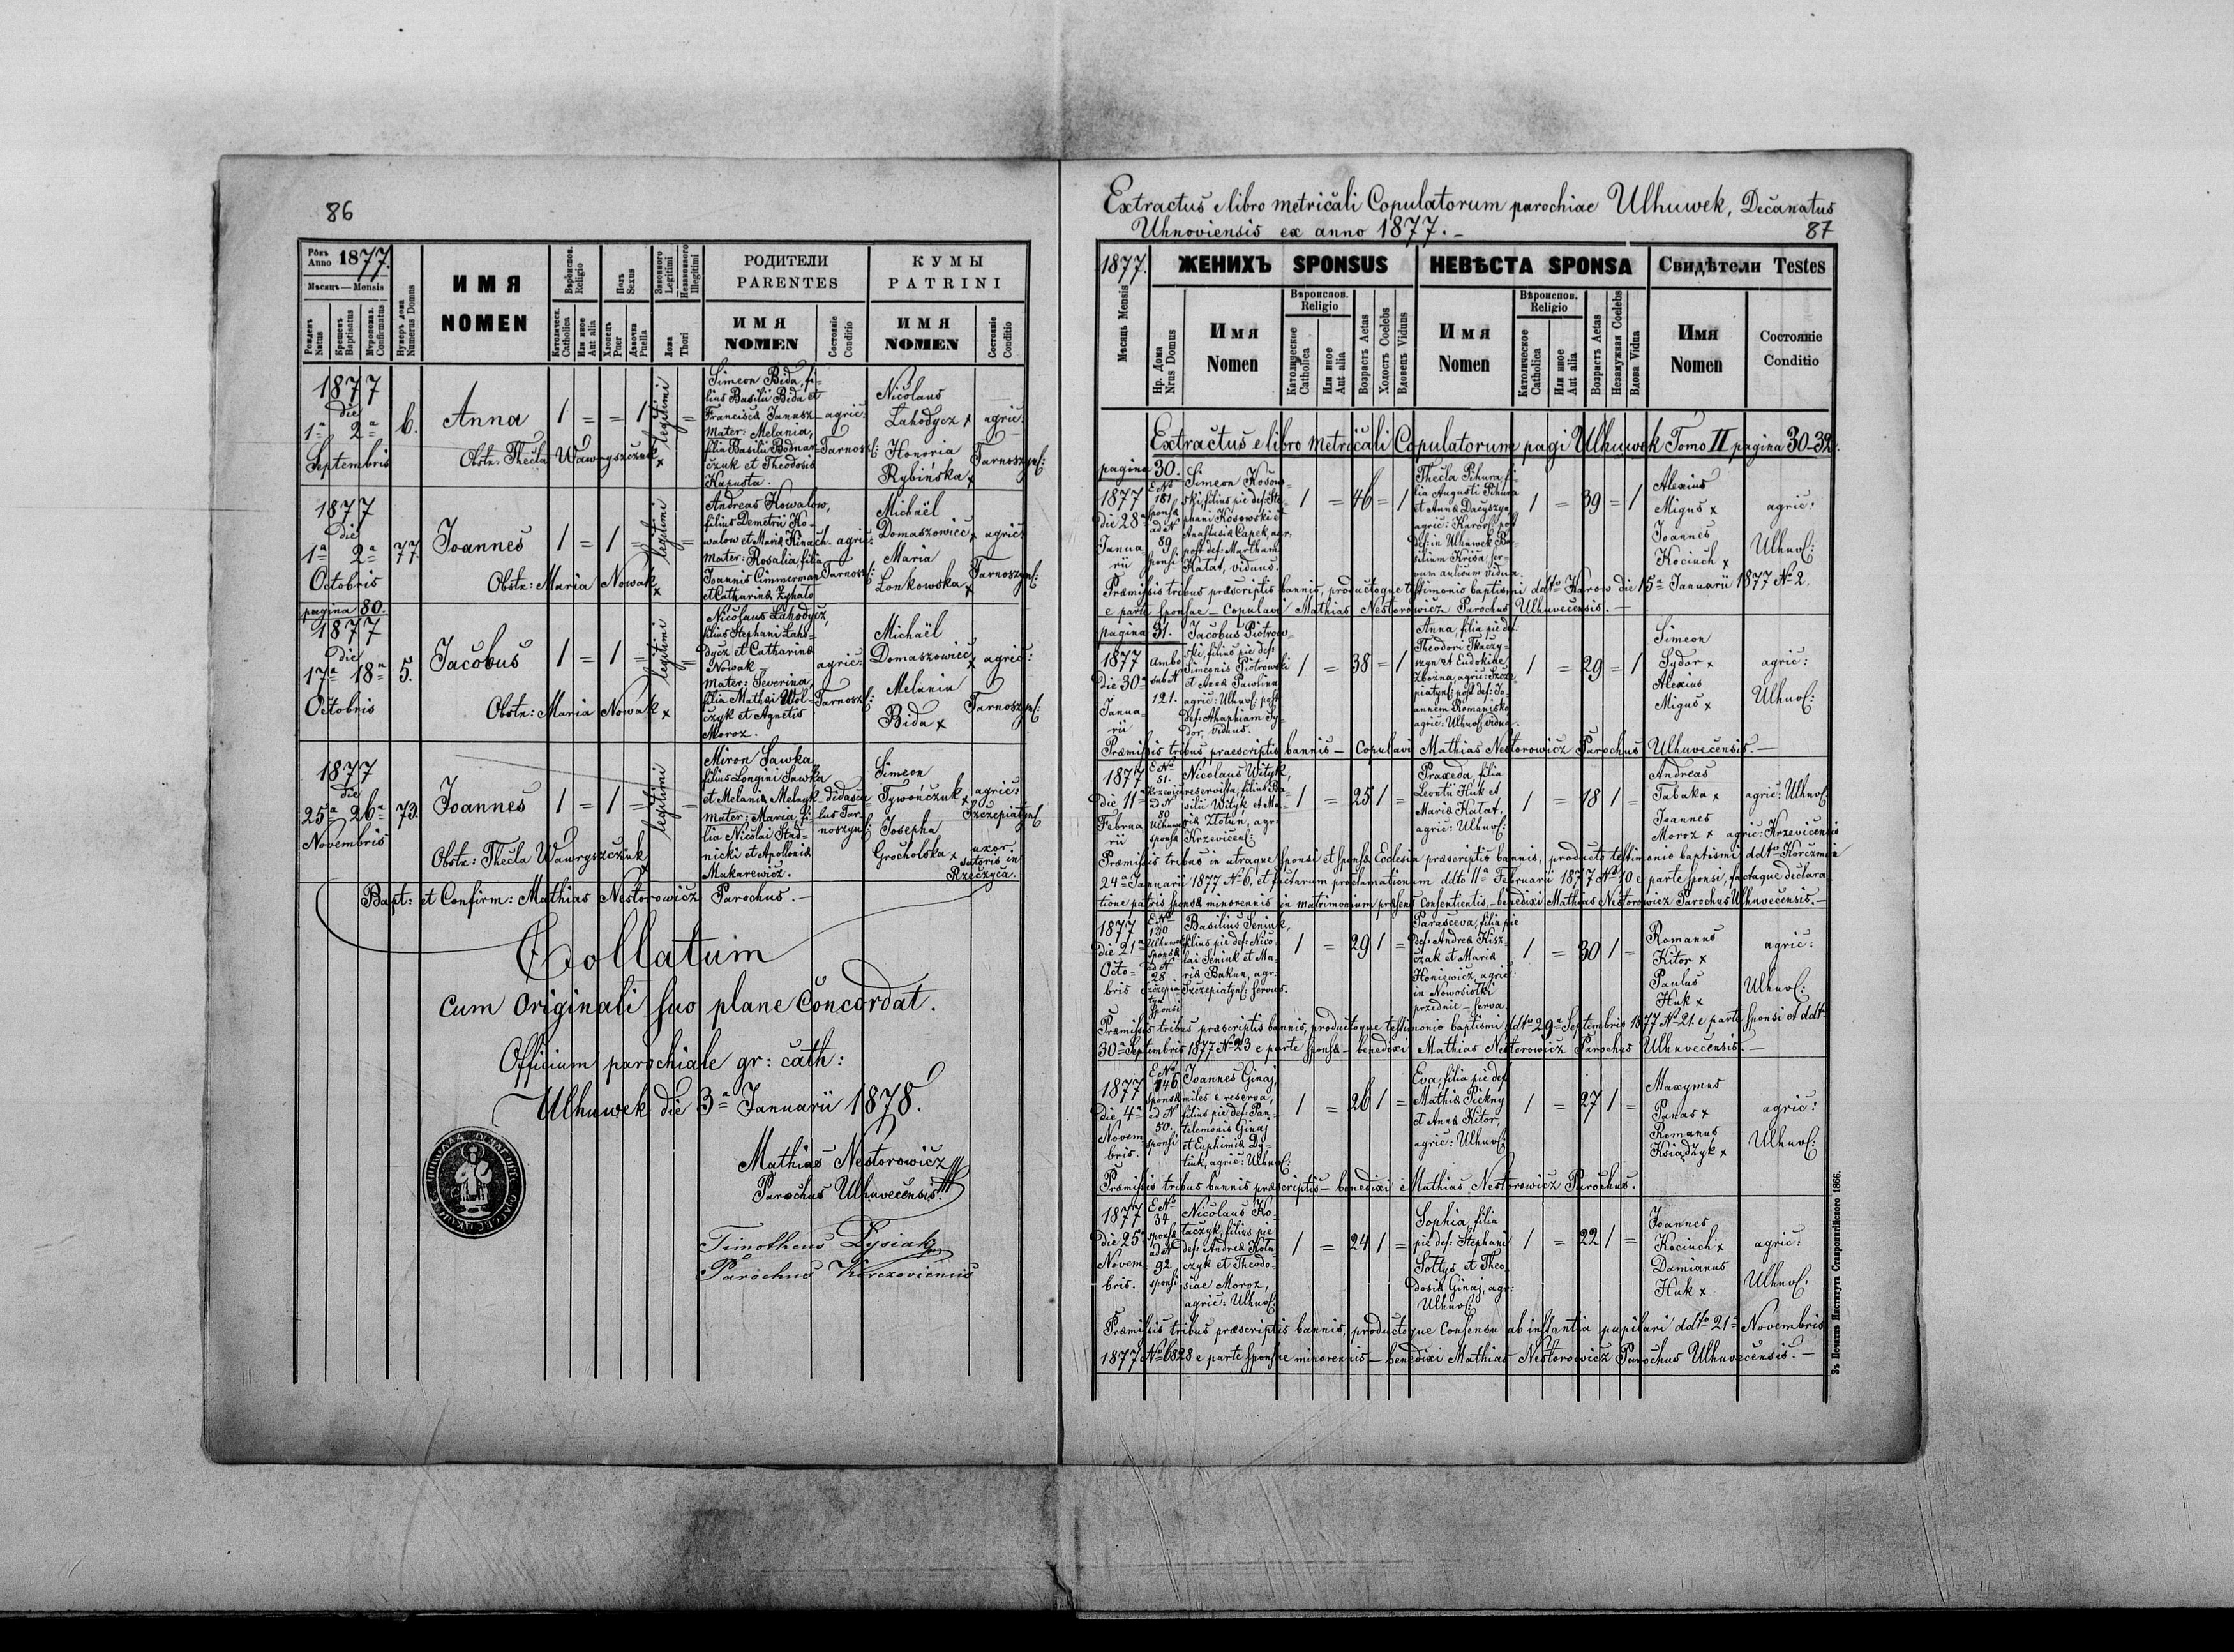 86
Рôкъ Anno 1877.
Мѣсяцъ — Mensis
Рожденъ Natus
Крещенъ Baptisatus
Мѵропомаз. Confirmatus
Нумеръ дома Numerus Domus
ИМЯ NOMEN
Вѣроиспов. Religio
Католическ. Catholica
Или иное Aut alia
Полъ Sexus
Хлопецъ Puer
Дѣвочка Puella
Законного Legitimi
Незаконного Illegitimi
Ложа Thori
РОДИТЕЛИ PARENTES
ИМЯ NOMEN
Состояніе Conditio
КУМЫ PATRINI
ИМЯ NOMEN
Состояніе Conditio
1877
die
1ª 2ª
Septembris
6.
Anna
1 = = 1 legitimi =
Obstr: Thecla Wawryszczuk x
Simeon Bida, fi-
lius Basilii Bida et
Francisca Janusz
Mater: Melania,
filia Basilii Bodnar-
czuk et Theodosia
Kapusta.
agric:
Tarnosz:
Nicolaus
Lahodycz x
Honoria
Rybińska x
agric:
Tarnoszyn:
1877
die
1ª 2ª
Octobris
77.
Joannes
1 = 1 = legitimi =
Obstr: Maria Nowak x
Andreas Kowalow,
filius Demetrii Ko-
walow et Maria Kinach.
Mater: Rosalia, filia
Joannis Cimmerman
et Catharina Zyhalo
agric:
Tarnosz:
Michaël
Domaszowicc x
Maria
Lonkowska x
agric:
Tarnoszyn:
pagina 80.
1877
die
17ª 18ª
Octobris
5.
Jacobus
1 = 1 = legitimi =
Obstr: Maria Nowak x
Nicolaus Lahodycz,
filius Stephani Laho-
dycz et Catharina
Nowak
Mater: Severina,
filia Mathei Wol-
czyk et Agnetis
Moroz.
agric:
Tarnosz:
Michaël
Domaszowicc x
Melania
Bida x
agric:
Tarnoszyn:
1877
die
25ª 26ª
Novembris
73.
Joannes
1 = 1 = legitimi =
Obstr: Thecla Wawryszczuk x
Miron Sawka
filius Longini Sawka
et Melania Melnyk
Mater: Maria, fi-
lia Nicolai Stad-
nicki et Apollonia
Makarewicz.
didasca-
lus Tar-
noszyn:
Simeon
Tywończuk x
Josepha
Grocholska x
agric:
Szczepiatyn:
uxor
sutoris in
Rzeczyca.
Bapt: et Confirm: Mathias Nestorowicz Parochus.—
Collatum
cum originali suo plane concordat.
Officium parochiale gr: cath:
Ulhuwek die 3ª Januarii 1878.
Mathias Nestorowicz
Parochus Ulhuvecensis.
Timotheus Lysiak
Parochus Korczoviensis
Extractus e libro metricali Copulatorum parochiae Ulhuwek, Decanatus
Uhnoviensis ex anno 1877.—
87
1877.
Мѣсяць Mensis
ЖЕНИХЪ SPONSUS
Нр. Дома Nrus Domus
Имя Nomen
Вѣроиспов. Religio
Католическое Catholica
Или иное Aut alia
Возрастъ Aetas
Холостъ Coelebs
Вдовецъ Viduus
НЕВѢСТА SPONSA
Имя Nomen
Вѣроиспов. Religio
Католическое Catholica
Или иное Aut alia
Возрастъ Aetas
Незамужная Coelebs
Вдова Vidua
Свидѣтели Testes
Имя Nomen
Состояніе Conditio
Extractus e libro metricali Copulatorum pagi Ulhuwek Tomo II pagina 30-32.
pagina 30.
1877
die 28ª
Janua-
rii
E Nº
181
sponsa
ad N
89
sponsi
Simeon Kosow-
ski, filius pie def: Ste-
phani Kosowski et
Anastasia Capek, agr:
post def: Martham
Katat, viduus.
1 = 46 = 1
Thecla Pihura, fi-
lia Augusti Pihura
et Anna Dacyszyn,
agric: Karow: post
def: in Ulhuwek Ba-
silium Krisa
vidua.
1 = 39 = 1
Alexius
Migus x
Joannes
Kociuch x
agric:
Ulhuv:
Præmissis tribus præscriptis bannis, productoque testimonio baptismi ddtº Karow die 15ª Januarii 1877 Nº 2.
e parte sponsae — Copulavi Mathias Nestorowicz Parochus Ulhuvecensis.—
pagina 31.
1877
die 30ª
Janua-
rii
Ambo
sub N
121.
Jacobus Piotrow-
ski, filius pie def:
Simeonis Piotrowski
et Anna Pawlina
agric: Ulhuv: post
def: Ahaphiam Sy-
dor, viduus.
1 = 38 = 1
Anna, filia pie def:
Theodori Tkaczy-
szyn et Eudokiae
Zbozna, agric: Szcze-
piatyn: post def: Jo-
annem Romanisko
agric: Ulhuv: vidua.
1 = 29 = 1
Simeon
Sydor x
Alexius
Migus x
agric:
Ulhuv:
Præmissis tribus praescriptis bannis — Copulavi Mathias Nestorowicz Parochus Ulhuvecensis.—
1877
die 11ª
Februa-
rii
E Nº
51.
Krzewica
ad N
80
Ulhuwek
sponsa
Nicolaus Wityk,
reservista, filius Ba-
silii Wityk et Ma-
ria Złotuń, agr:
Krzevicen:
1 = 25 1 =
Praxeda, filia
Leontii Huk et
Maria Katat.
agric: Ulhuv:
1 = 18 1 =
Andreas
Tabaka x
Joannes
Moroz x
agric: Ulhuv:
agric: Krzevicensis
Præmissis tribus in utraque sponsi et sponsa Ecclesia præscriptis bannis, producto testimonio baptismi ddtº Korczmin
24ª Januarii 1877 Nº 6, et factarum proclamationum ddto 11ª Februarii 1877 Nº 10 e parte sponsi, factaque declara-
tione patris sponsa minorennis in matrimonium præsens consentientis, — benedixi Mathias Nestorowicz Parochus Ulhuvecensis.—
1877
die 21ª
Octo-
bris
E Nº
130
Ulhuwek
sponsa
ad N
28
Szczepia-
tyn
sponsi
Basilius Seniuk,
filius pie def: Nico-
lai Seniuk et Ma-
ria Bakun, agr:
Szczepiatyn: servus.
1 = 29 1 =
Parasceva, filia pie
def: Andrea Kisz-
czak et Maria
Honiewicz, agric:
in Nowosiolki
przednie — serva.
1 = 30 1 =
Romanus
Kitor x
Paulus
Huk x
agric:
Ulhuv:
Præmissis tribus præscriptis bannis, productoque testimonio baptismi ddtº 29ª Septembris 1877 Nº 21. e parte sponsi et ddtº
30ª Septembris 1877 Nº 23 e parte sponsa — benedixi Mathias Nestorowicz Parochus Ulhuvecensis.—
1877
die 4ª
Novem-
bris.
E Nº
146
sponsa
ad N
50.
sponsi
Joannes Ginaj,
miles e reserva,
filius pie def: Pan-
telemonis Ginaj
et Euphimia Dy-
tiuk, agric: Ulhuv:
1 = 26 1 =
Eva, filia pie def:
Mathia Piekny
et Anna Kitor,
agric: Ulhuv:
1 = 27 1 =
Maxymus
Panas x
Romanus
Książdzyk x
agric:
Ulhuv:
Præmissis tribus bannis præscriptis — benedixi Mathias Nestorowicz Parochus.
1877
die 25ª
Novem-
bris.
E Nº
34
sponsa
ad N
92
sponsi
Nicolaus Ko-
taczyk, filius pie
def: Andrea Kota-
czyk et Theodo-
siae Moroz,
agric: Ulhuv:
1 = 24 1 =
Sophia, filia
pie def: Stephani
Sołtys et Theo-
dosia Ginaj, agr:
Ulhuv:
1 = 22 1 =
Joannes
Kociuch x
Damianus
Huk x
agric:
Ulhuv:
Præmissis tribus præscriptis bannis, productoque Consensu ab instantia pupilari ddtº 21ª Novembris
1877 Nº 6828 e parte sponsae minorennis — benedixi Mathias Nestorowicz Parochus Ulhuvecensis.—
Зъ Печатнѣ Института Ставропигійского 1866.